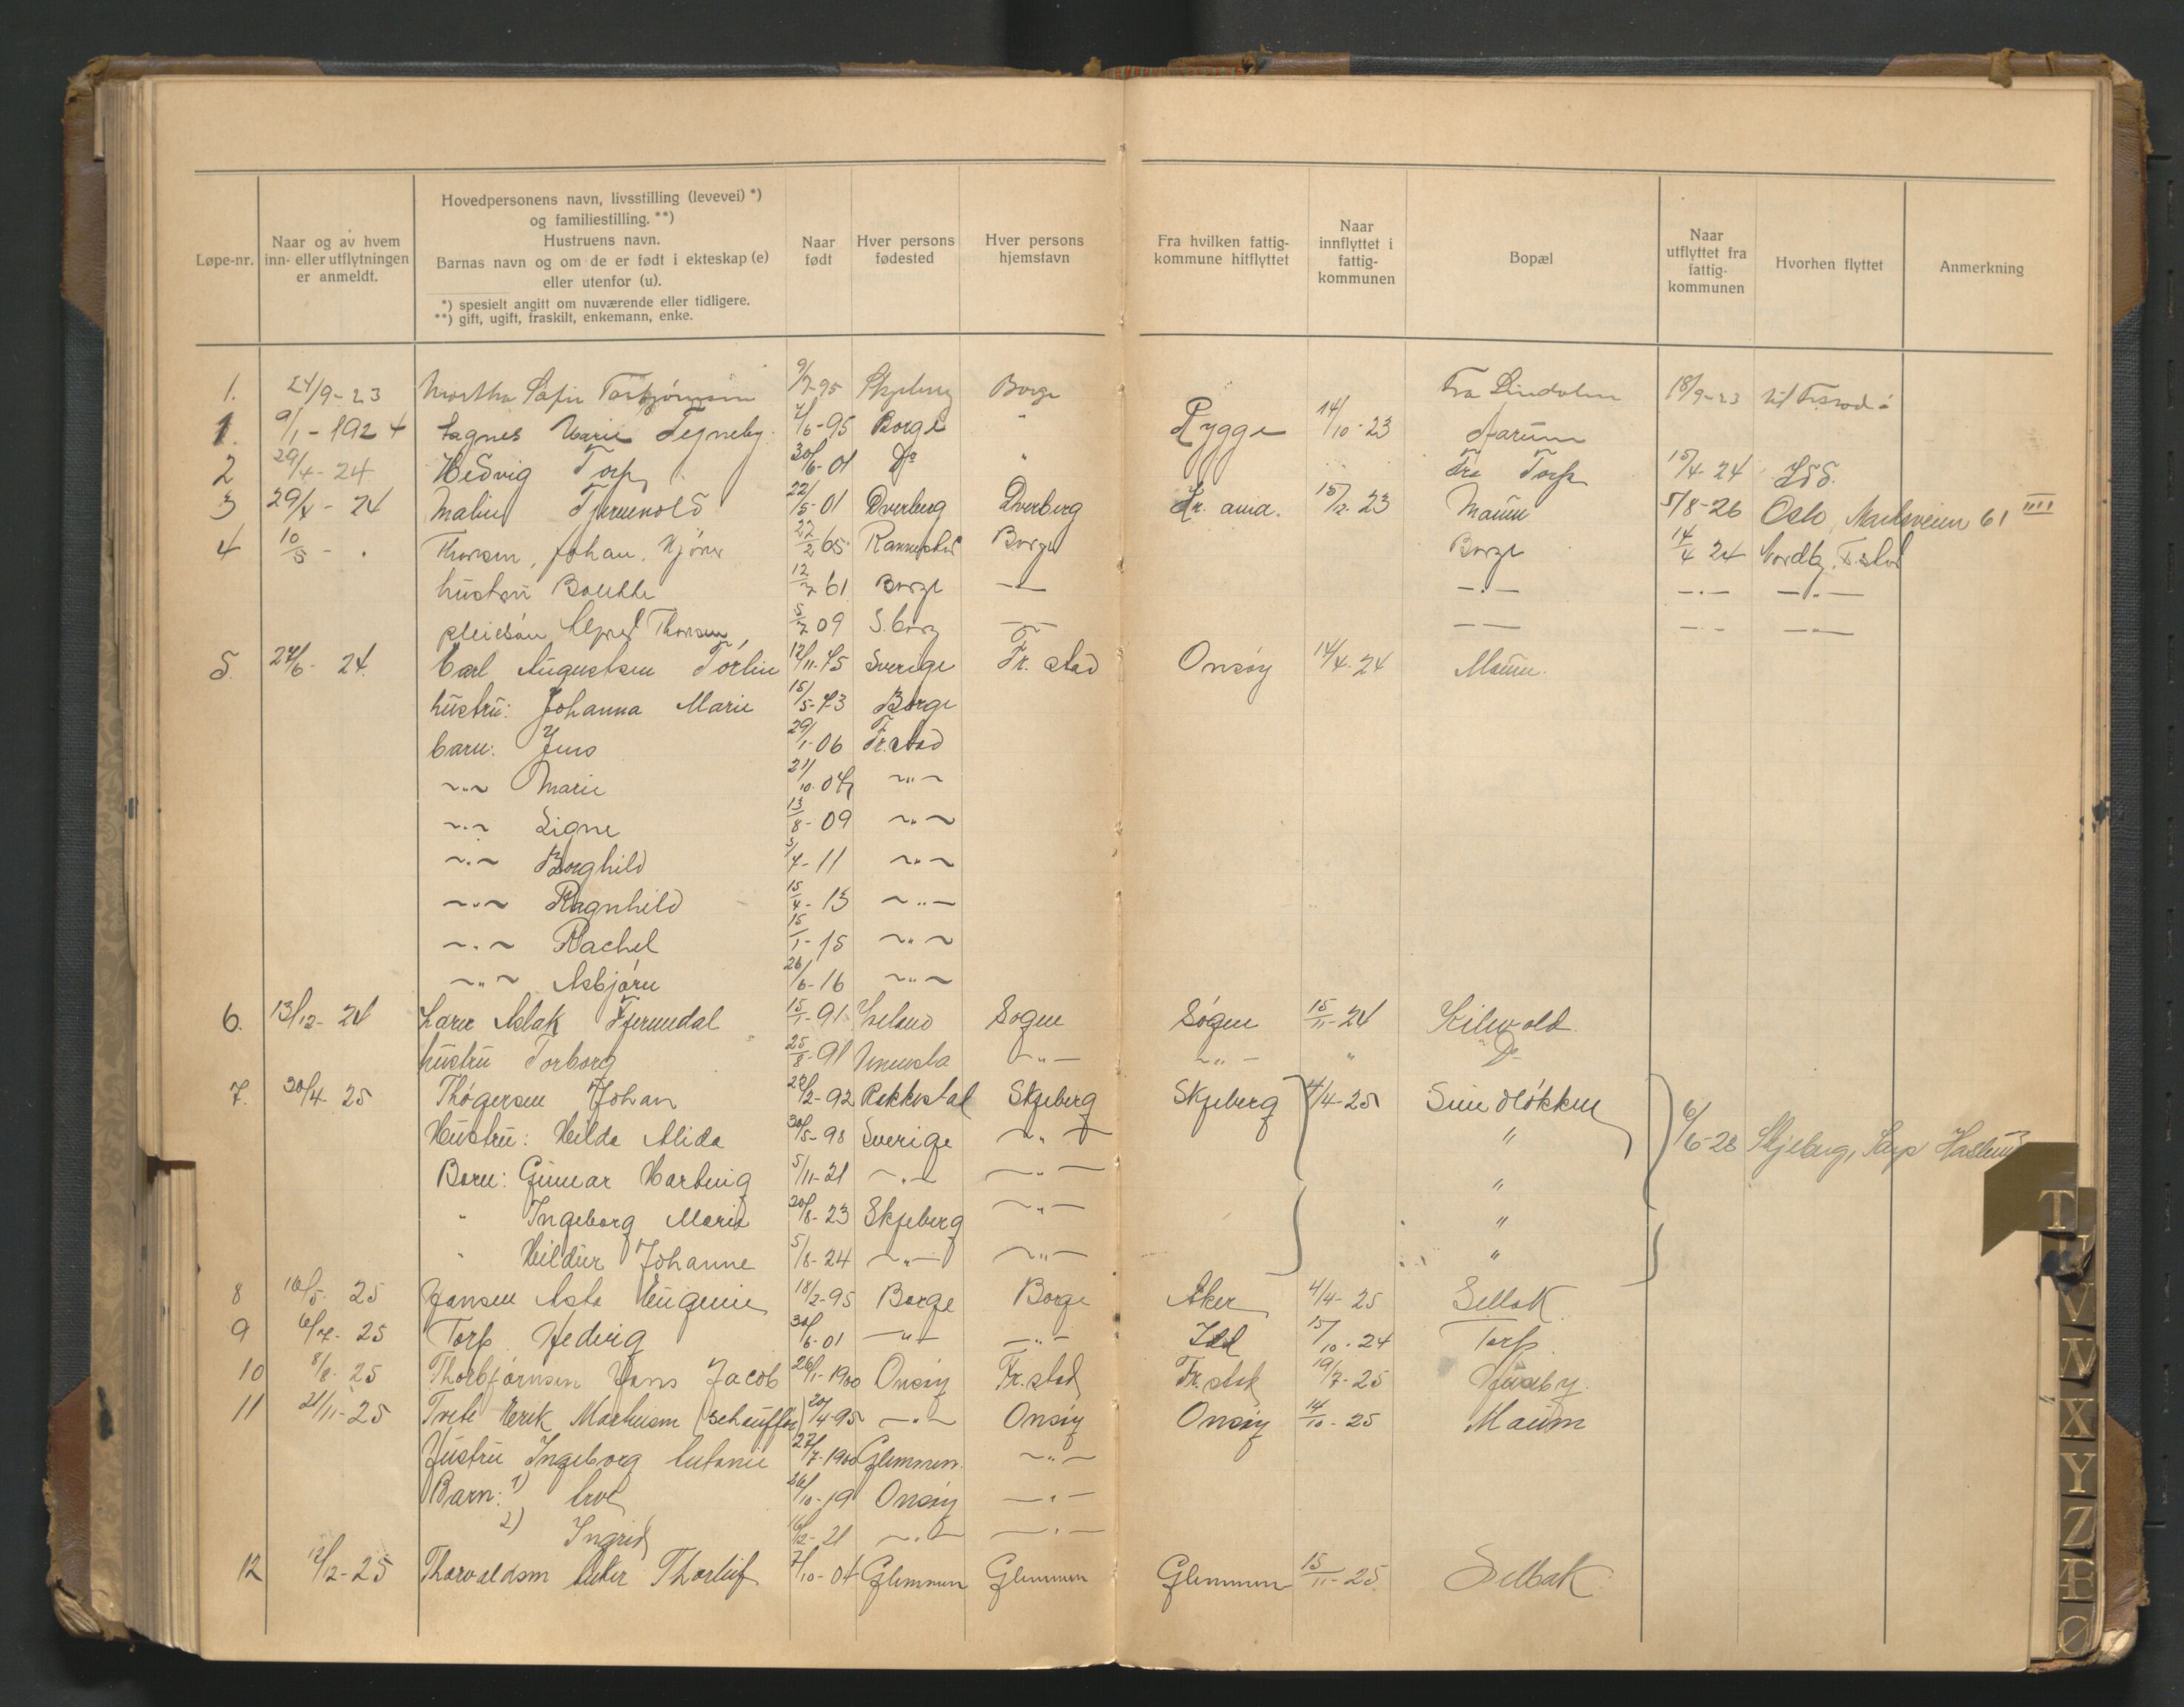 Løpe-nr.
Naar og av hvem
inn- eller utflytningen
er anmeldt.
Hovedpersonens navn, livsstilling (levevei) *)
og familiestilling. **)
Hustruens navn.
Barnas navn og om de er født i ekteskap (e)
eller utenfor (u).
*) spesielt angitt om nuværende eller tidligere.
**) gift, ugift, fraskilt, enkemann, enke.
Naar
født
Hver persons
fødested
Hver persons
hjemstavn
Fra hvilken fattig-
kommune hitflyttet
Naar
innflyttet i
fattig-
kommunen
Bopæl
Naar
utflyttet fra
fattig-
kommunen
Hvorhen flyttet
Anmerkning
1. 24/9-23 Martha Sofie Torbjørnsen 9/7-95 Skjeberg Borge Fra 18/9-23 til
1. 9/1-1924 Agnes Marie Tejneby. 7/6-95 Borge " Rygge 14/10-23 Aarum
2 29/4-24 Hedvig Torp 30/6-01 Do " Fra Torp 15/4-24 Idd.
3 29/4-24 Malin 22/5-01 Dverberg Dverberg Kr. ania. 15/12-23 Maum 5/8-26 Oslo, 61 IIII
4 10/5 - " Thorsen, Johan. 22/2 65 Borge Borge 14/4 24 F.stad
hustru 12/7 61 Borge —"— —"— —"— —"—
pleiesøn Alfred Thorsen, 5/7 09 S.borg —"— —"— —"— —"—
5. 24/6-24 Carl Augustsen Torlin 12/11-75 Sverige Fr. stad Onsøy 14/4-24 Maum.
hustru: Johanna Marie 15/5-73 Borge
barn: Jens 29/1-06 Fr.stad
—"— Marie 21/10-07 —"—
—"— Signe 13/8-09 —"—
—"— Borghild 3/4-11 —"—
—"— Ragnhild 15/4-13 —"—
—"— Rachel 15/1-15 —"—
—"— Asbjørn 26/6-16 —"—
6. 13/12-24 Aslak 15/1-91 Søgne Søgne 15/11-24
hustru Torborg 25/8-91 —"— —"— " Do
7. 30/4-25 Thøgersen Johan 22/2-92 Rakkestad Skjeberg Skjeberg 4/4-25 6/6-28 Skjeberg,
Hustru: Hilda Alida 30/5-98 Sverige —"— "
Børn: Gunnar Hartvig 5/11-21 —"— —"— "
" Ingeborg Marie 20/8-23 Skjeberg —"— "
" Hildur Johanne 5/8-24 —"— —"— "
8 16/5-25 Jansen Asta Eugenie 18/2-95 Borge Borge Aker 4/4-25 Sellak
9 6/7-25 Torp Hedvig 30/6-01 —"— —"— Idd 15/10-24 Torp
10 8/8-25 Thorbjørnsen Hans Jacob 26/1-1900 Onsøy Fr.stad Fr.stad 19/7-25 Huseby.
11 21/11-25 Tvete Erik Mathisen (schauffør) 20/4-95 —"— Onsøy Onsøy 14/10-25 Maum
Hustru Ingeborg 27/7-1900 Glemmen. —"—
Barn: 1) 26/10-19 Onsøy —"—
2) Ingrid 16/12-21 —"— —"—
12 12/12-25 Thorvaldsen Thorleif 7/10-04 Glemmen Glemmen Glemmen 15/11-25. Selbak
T
V
W
X
Y
Z
Æ
Ø